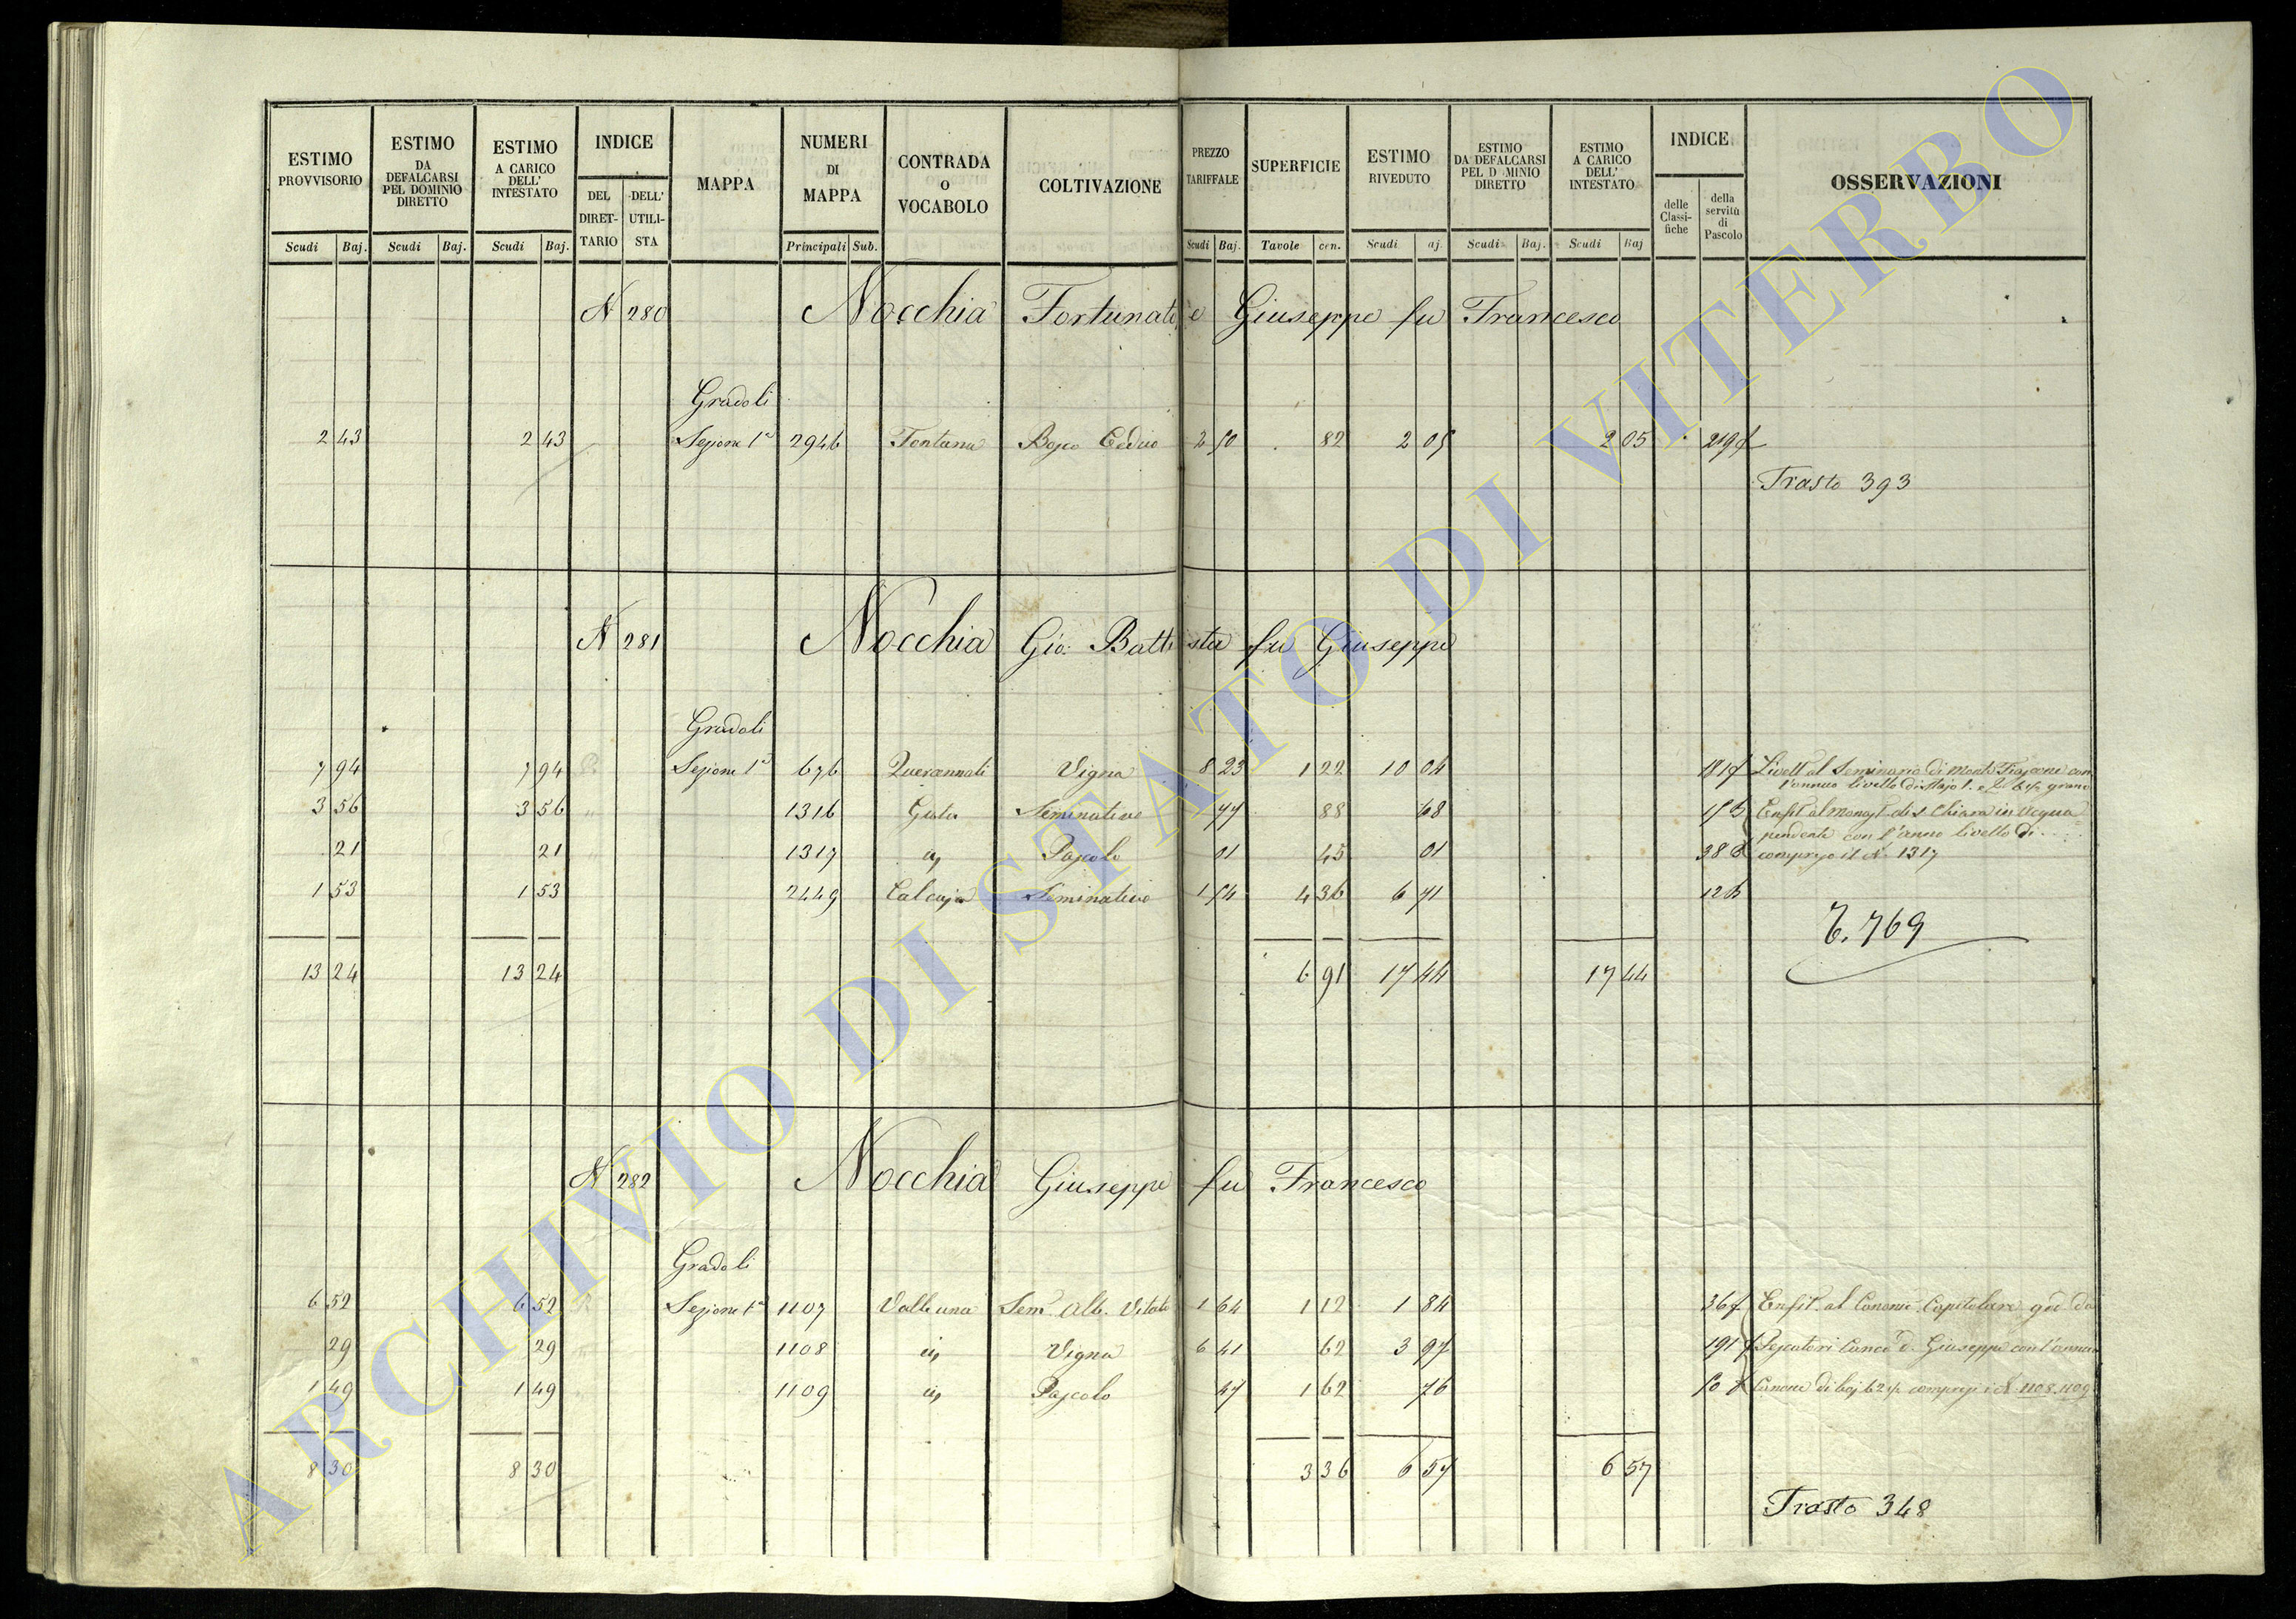 ESTIMO PROVVISORIO | ESTIMO DA DEFALCARSI PEL DOMINIO DIRETTO | ESTIMO A CARICO DELL' INTESTATO | INDICE | MAPPA | NUMERI DI MAPPA | CONTRADA O VOCABOLO | COLTIVAZIONE | PREZZO TARIFFALE | SUPERFICIE | ESTIMO RIVEDUTO | ESTIMO DA DEFALCARSI PEL D MINIO DIRETTO | ESTIMO A CARICO DELL' INTESTATO | INDICE | OSSERVAZIONI
DEL DIRET-TARIO | DELL' UTILI-STA | delle Classi-fiche | della servitù di Pascolo
Scudi | Baj. | Scudi | Baj. | Scudi | Baj. | Principali | Sub. | Scudi | Baj. | Tavole | cen. | Scudi | aj. | Scudi | Baj. | Scudi | Baj
N 280 Nocchia Fortunato e Giuseppe fu Francesco
Gradoli
2 43 | 2 43 | Sezione 1a | 2946 | Fontana | Bosco Ceduo | 2 50 | 82 | 2 05 | 2 05 | 219
Trasto 393
N 281 Nocchia Gio: Battista fu Giuseppe
Gradoli
7 94 | 7 94 | Sezione 1a | 676 | Vigna | 8 23 | 1 22 | 10 04 | Livell al Seminario di Monte Fiascone con
l'annuo livello di staja 1. grano
3 56 | 3 56 | 1316 | Seminativo | 77 | 88 | 68 | Enfit al Monast di S. Chiara in Acqua
pendente con l'anno livello di
21 | 21 | 1317 | Pascolo | 01 | 45 | 01 | 38 | compreso il N. 1317
1 53 | 1 53 | 2449 | Seminativo | 1 54 | 4 36 | 6 71 | 12
T. 769
13 24 | 13 24 | 6 91 | 17 44 | 17 44
N 282 Nocchia Giuseppe fu Francesco
Gradoli
6 52 | 6 52 | Sezione 1a | 1107 | Sem Alb. Vitato | 1 64 | 1 12 | 1 84 | 36 | Enfit. al Canonic Capitolare
29 | 29 | 1108 | Vigna | 6 41 | 62 | 3 97 | 191 | D. Giuseppe con l'annuo
1 49 | 1 49 | 1109 | Pascolo | 47 | 1 62 | 76 | 50 | Canone di baj 62 compresi i N. 1108. 1109
8 30 | 8 30 | 3 36 | 6 57 | 6 57
Trasto 348
ARCHIVIO DI STATO DI VITERBO